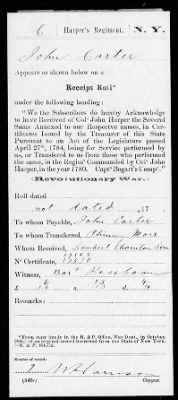 C | Harper's Regiment. | N. Y.
John Carter
Appears as shown below on a
Receipt Roll*
under the following heading:
"We the Subscribers do hereby Acknowledge
to have Received of Col° John Harper the Several
Sums Annexed to our Respective names, in Cer-
tificates Issued by the Treasurer of this State
Pursuant to an Act of the Legislature passed
April 27th, 1784, being for Service performed by
us, or Transferred to us from those who performed
the same, in the Regim' Commanded by Col° Harper
in the year 1780. Capt° Bogart's Comp°."
(Revolutionary War.)
Roll dated
not dated, 17 .
To whom Payable, John Carter
To whom Transferred,
When Received,
N° Certificate,
Witness,
Remarks:
*From copy made in the R. & P. Office, War Dep't, in October,
of an original record borrowed from the State of New York.
—R. & P.
Number of record:
Copyist.